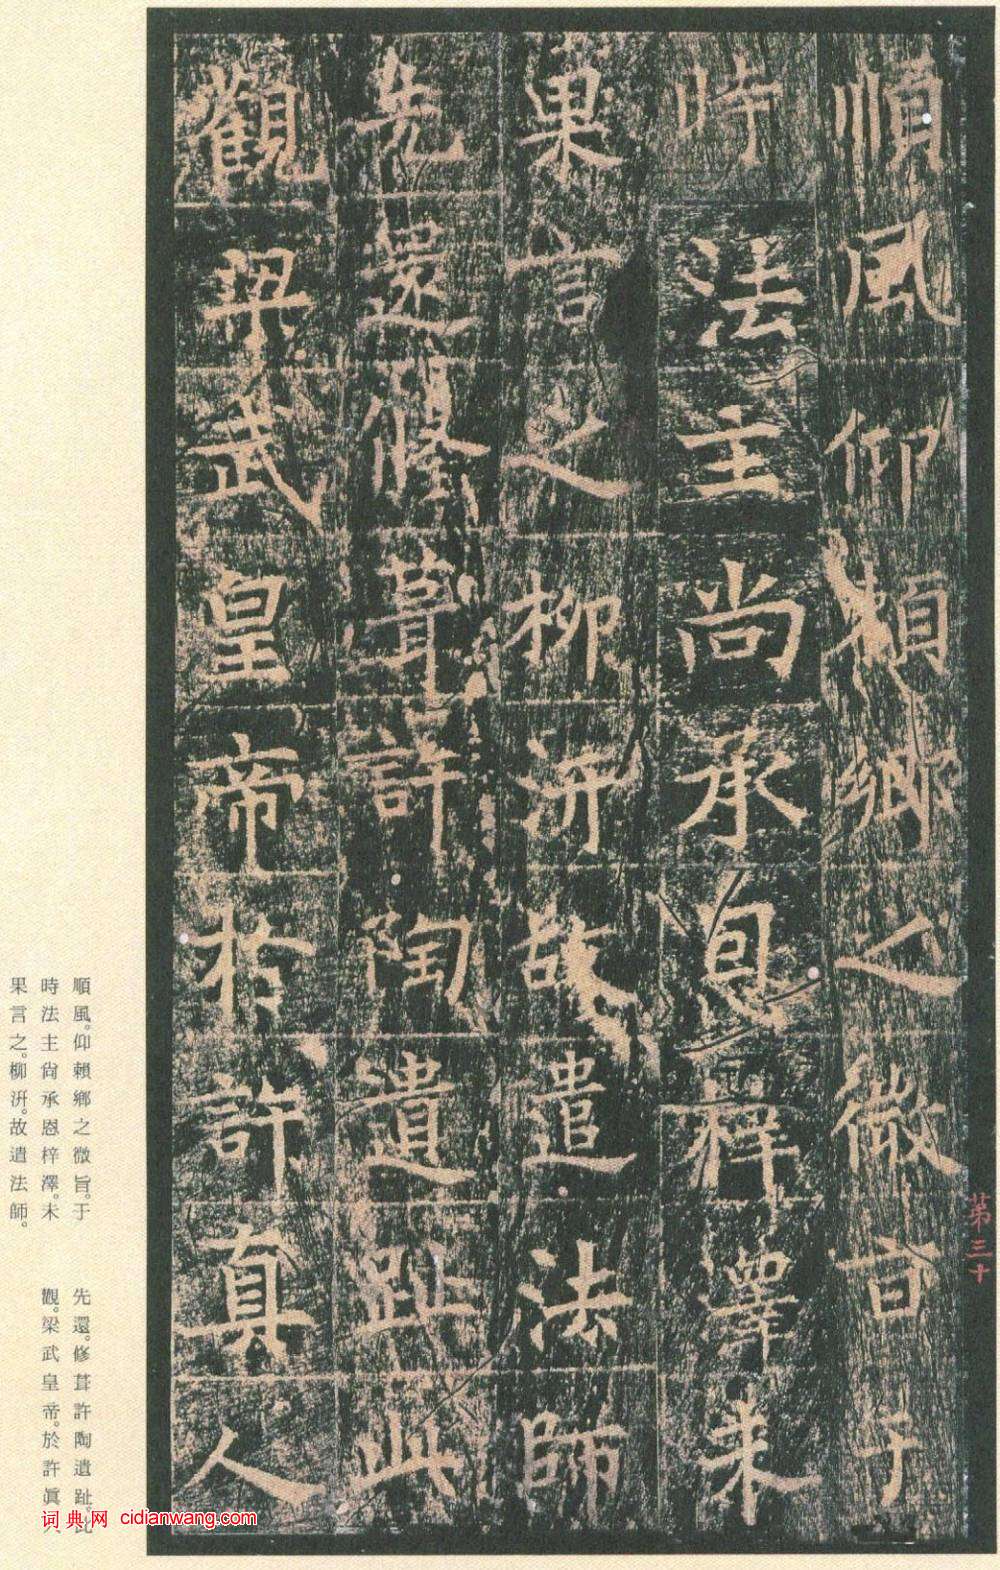 第三十
順風仰賴鄉之微旨于
時法主尚承恩梓澤未
果言之柳汧故遣法師
先還修葺許陶遺趾此
觀梁武皇帝於許真人
順風。仰賴鄉之微旨。于
時法主尙承恩梓澤。未
果言之。柳汧。故遣法師。
先還。修葺許陶遺趾。此
觀。梁武皇帝。於許眞人
词典网 cidianwang.com